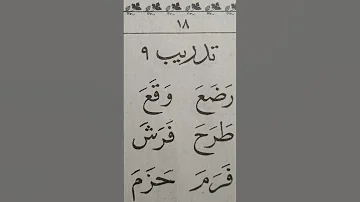 ١٨
تدريب ٩
رَضَعَ وَقَعَ
طَرَحَ فَرَشَ
فَرَمَ حَزَمَ